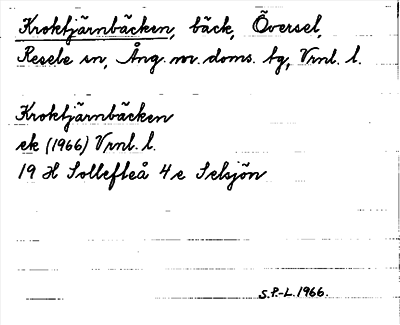 Kroktjärnbäcken, bäck, Översel,
Resele sn, Ång. nr. doms. tg, Vrnl. l.
Kroktjärnbäcken
ek (1966) Vrnl. l.
19 H Sollefteå 4 e Selsjön
S.P.-L. 1966.